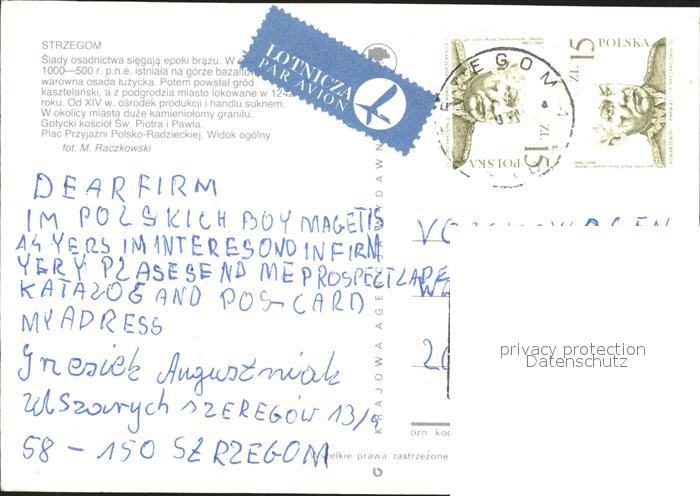 STRZEGOM
Ślady osadnictwa sięgają epoki brązu. W
1000—500 r. p.n.e. istniała na górze bazalto
warowna osada łużycka. Potem powstał gród
kasztelański, a z podgrodzia miasto lokowane w 1242
roku. Od XIV w. ośrodek produkcji i handlu suknem.
W okolicy miasta duże kamieniołomy granitu.
Gotycki kościół Św. Piotra i Pawła.
Plac Przyjaźni Polsko-Radzieckiej. Widok ogólny
fot. M. Raczkowski
LOTNICZA
PAR AVION
POLSKA
ZŁ 15
POLSKA
ZŁ 15
DEAR FIRM
IM POLSKICH BOY MAGETIS
14 YERS IM INTERESOND IN FIRM
YERY PLASE SEND ME PROSPECT LAPE
KATALOG AND POS-CARD
MY ADRESS
Grzesiek Augustniak
Ul Szarych SZEREGÓW 13/4
58-150 STRZEGOM
KRAJOWA AGE WYDAWN
20
ożn kod
Wszelkie prawa zastrzeżone
privacy protection
Datenschutz